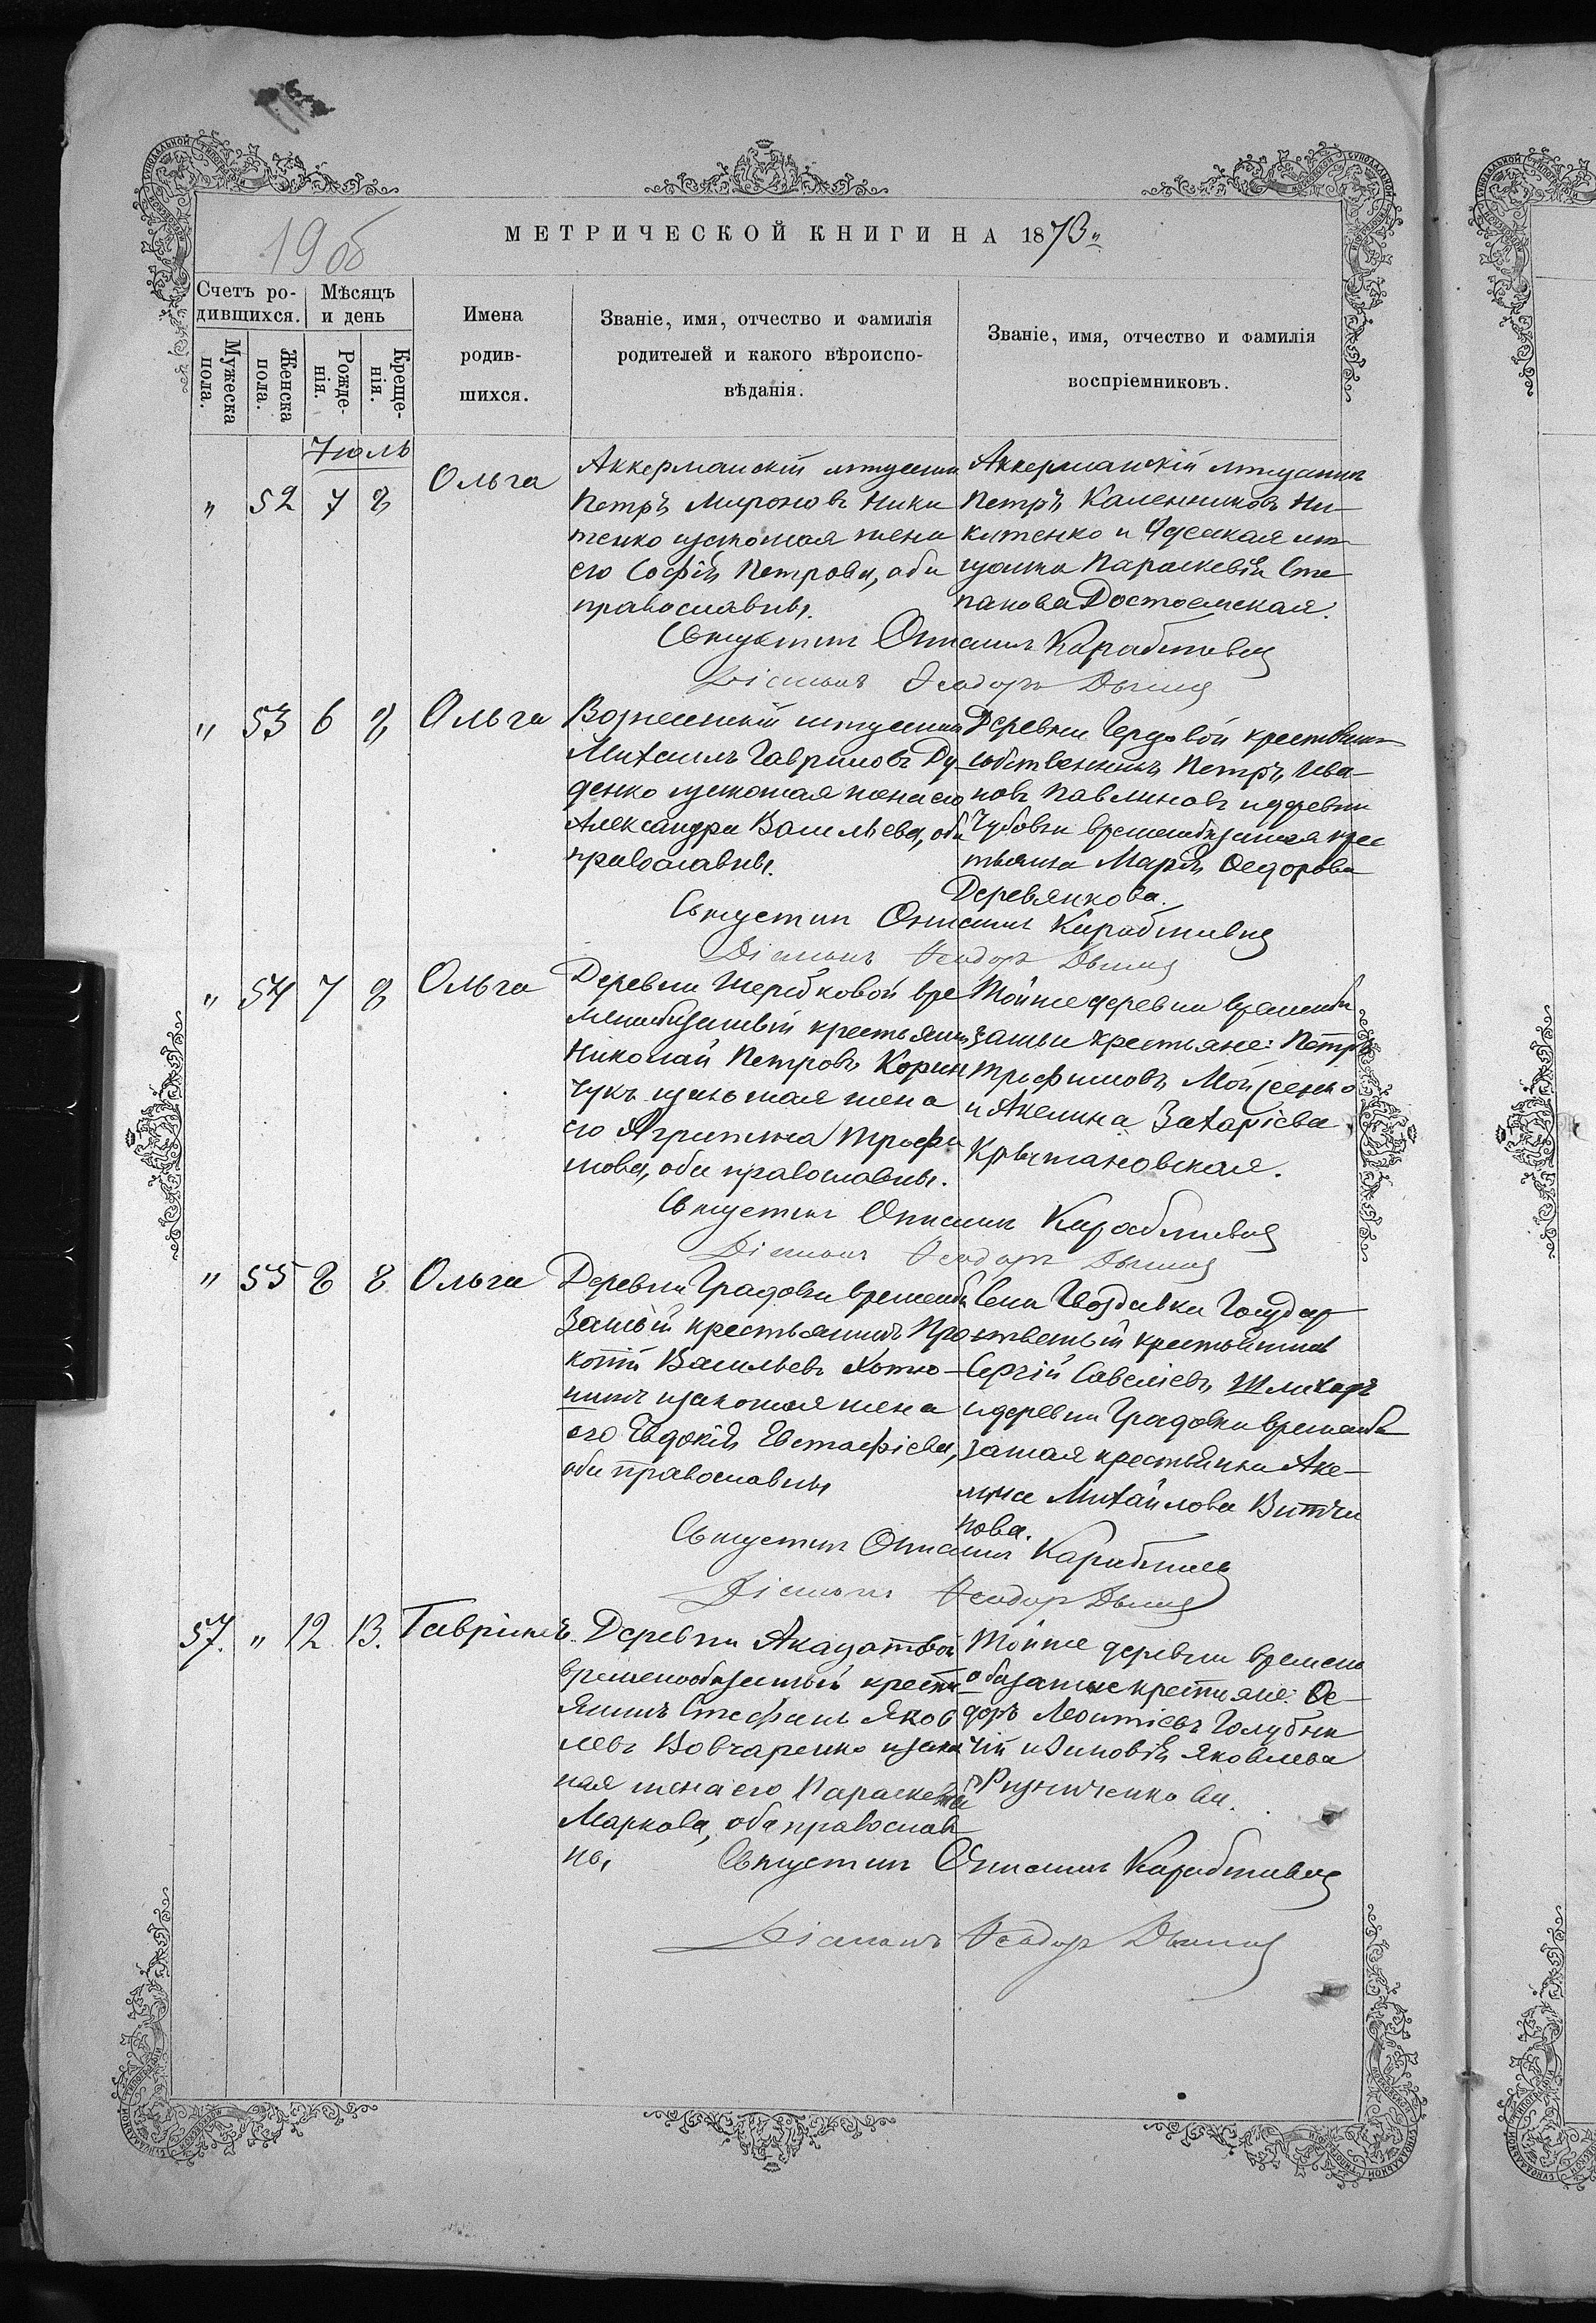 19 об
МЕТРИЧЕСКОЙ КНИГИ НА 1873
Счетъ ро-
дившихся.
Мѣсяцъ
и день
Мужеска
пола.
Женска
пола.
Рожде-
нія.
Креще-
нія.
Имена
родив-
шихся.
Званіе, имя, отчество и фамилія
родителей и какого вѣроиспо-
вѣданія.
Званіе, имя, отчество и фамилія
воспріемниковъ.
Іюль
" 52 7 8 Ольга
Аккерманскій мѣщанин
Петръ Мироновъ Ники
тенко изаконая жена
его Софія Петрова, оби
православны.
Аккерманскій мѣщанин
Петръ Калениковъ Ни-
китенко и Одесская мѣ
щанка Параскевія Сте
панова
Священникъ Карабиневъ
Діаконъ Феодоръ
" 53 6 8 Ольга
Вознесенскій мѣщанин
Михаилъ Гавриловъ Ду-
денко изаконая жена его
Александра Васильева, оби
православны.
Деревни крестьянин
собственникъ Петръ Ива-
новъ Павлиновъ и деревни
Чубовки временнобязаная крес
тьянка Марія Федорова
Деревянкова.
Священникъ Карабиневъ
Діаконъ Феодоръ
" 54 7 8 Ольга
Деревни Щербковой вре
меннобязанный крестьянинъ
Николай Петровъ Корин
чукъ изаконая жена
его Агрипина Трофи
мова, оби православны.
Тойже деревни временноби
заныи крестьяне: Петръ
Трофимовъ Мойсеенко
и Акилина Захаріева
Крыжановская.
Священникъ Карабиневъ
Діаконъ Феодоръ
" 55 8 8 Ольга
Деревни Градовки временноби
заный крестьянинъ Про
копій Васильевъ Хотю-
нинъ изаконая жена
его Евдокія Евстафіева,
оби православны
Села Гвоздавки Государ
ственный крестьянинъ
Сергій Савеліевъ
и деревни Градовки временноби
заная крестьянка Аке-
лина Михайлова Витчи
нова.
Священникъ Карабиневъ
Діаконъ Феодоръ
57. " 12 13. Гавріилъ.
Деревни Акацатовой
временнообязанный крестья
янинъ Стефанъ Яков
левъ Вовчаренко изако
ная жена его Параскева
Маркова, оба православ
ны,
Тойже деревни временно
обязаные крестьяне: Ѳе-
доръ Леонтіевъ Голубни
чій и Зиновія Яковлева
Ризниченкова.
Священникъ Карабиневъ
Діаконъ Феодоръ